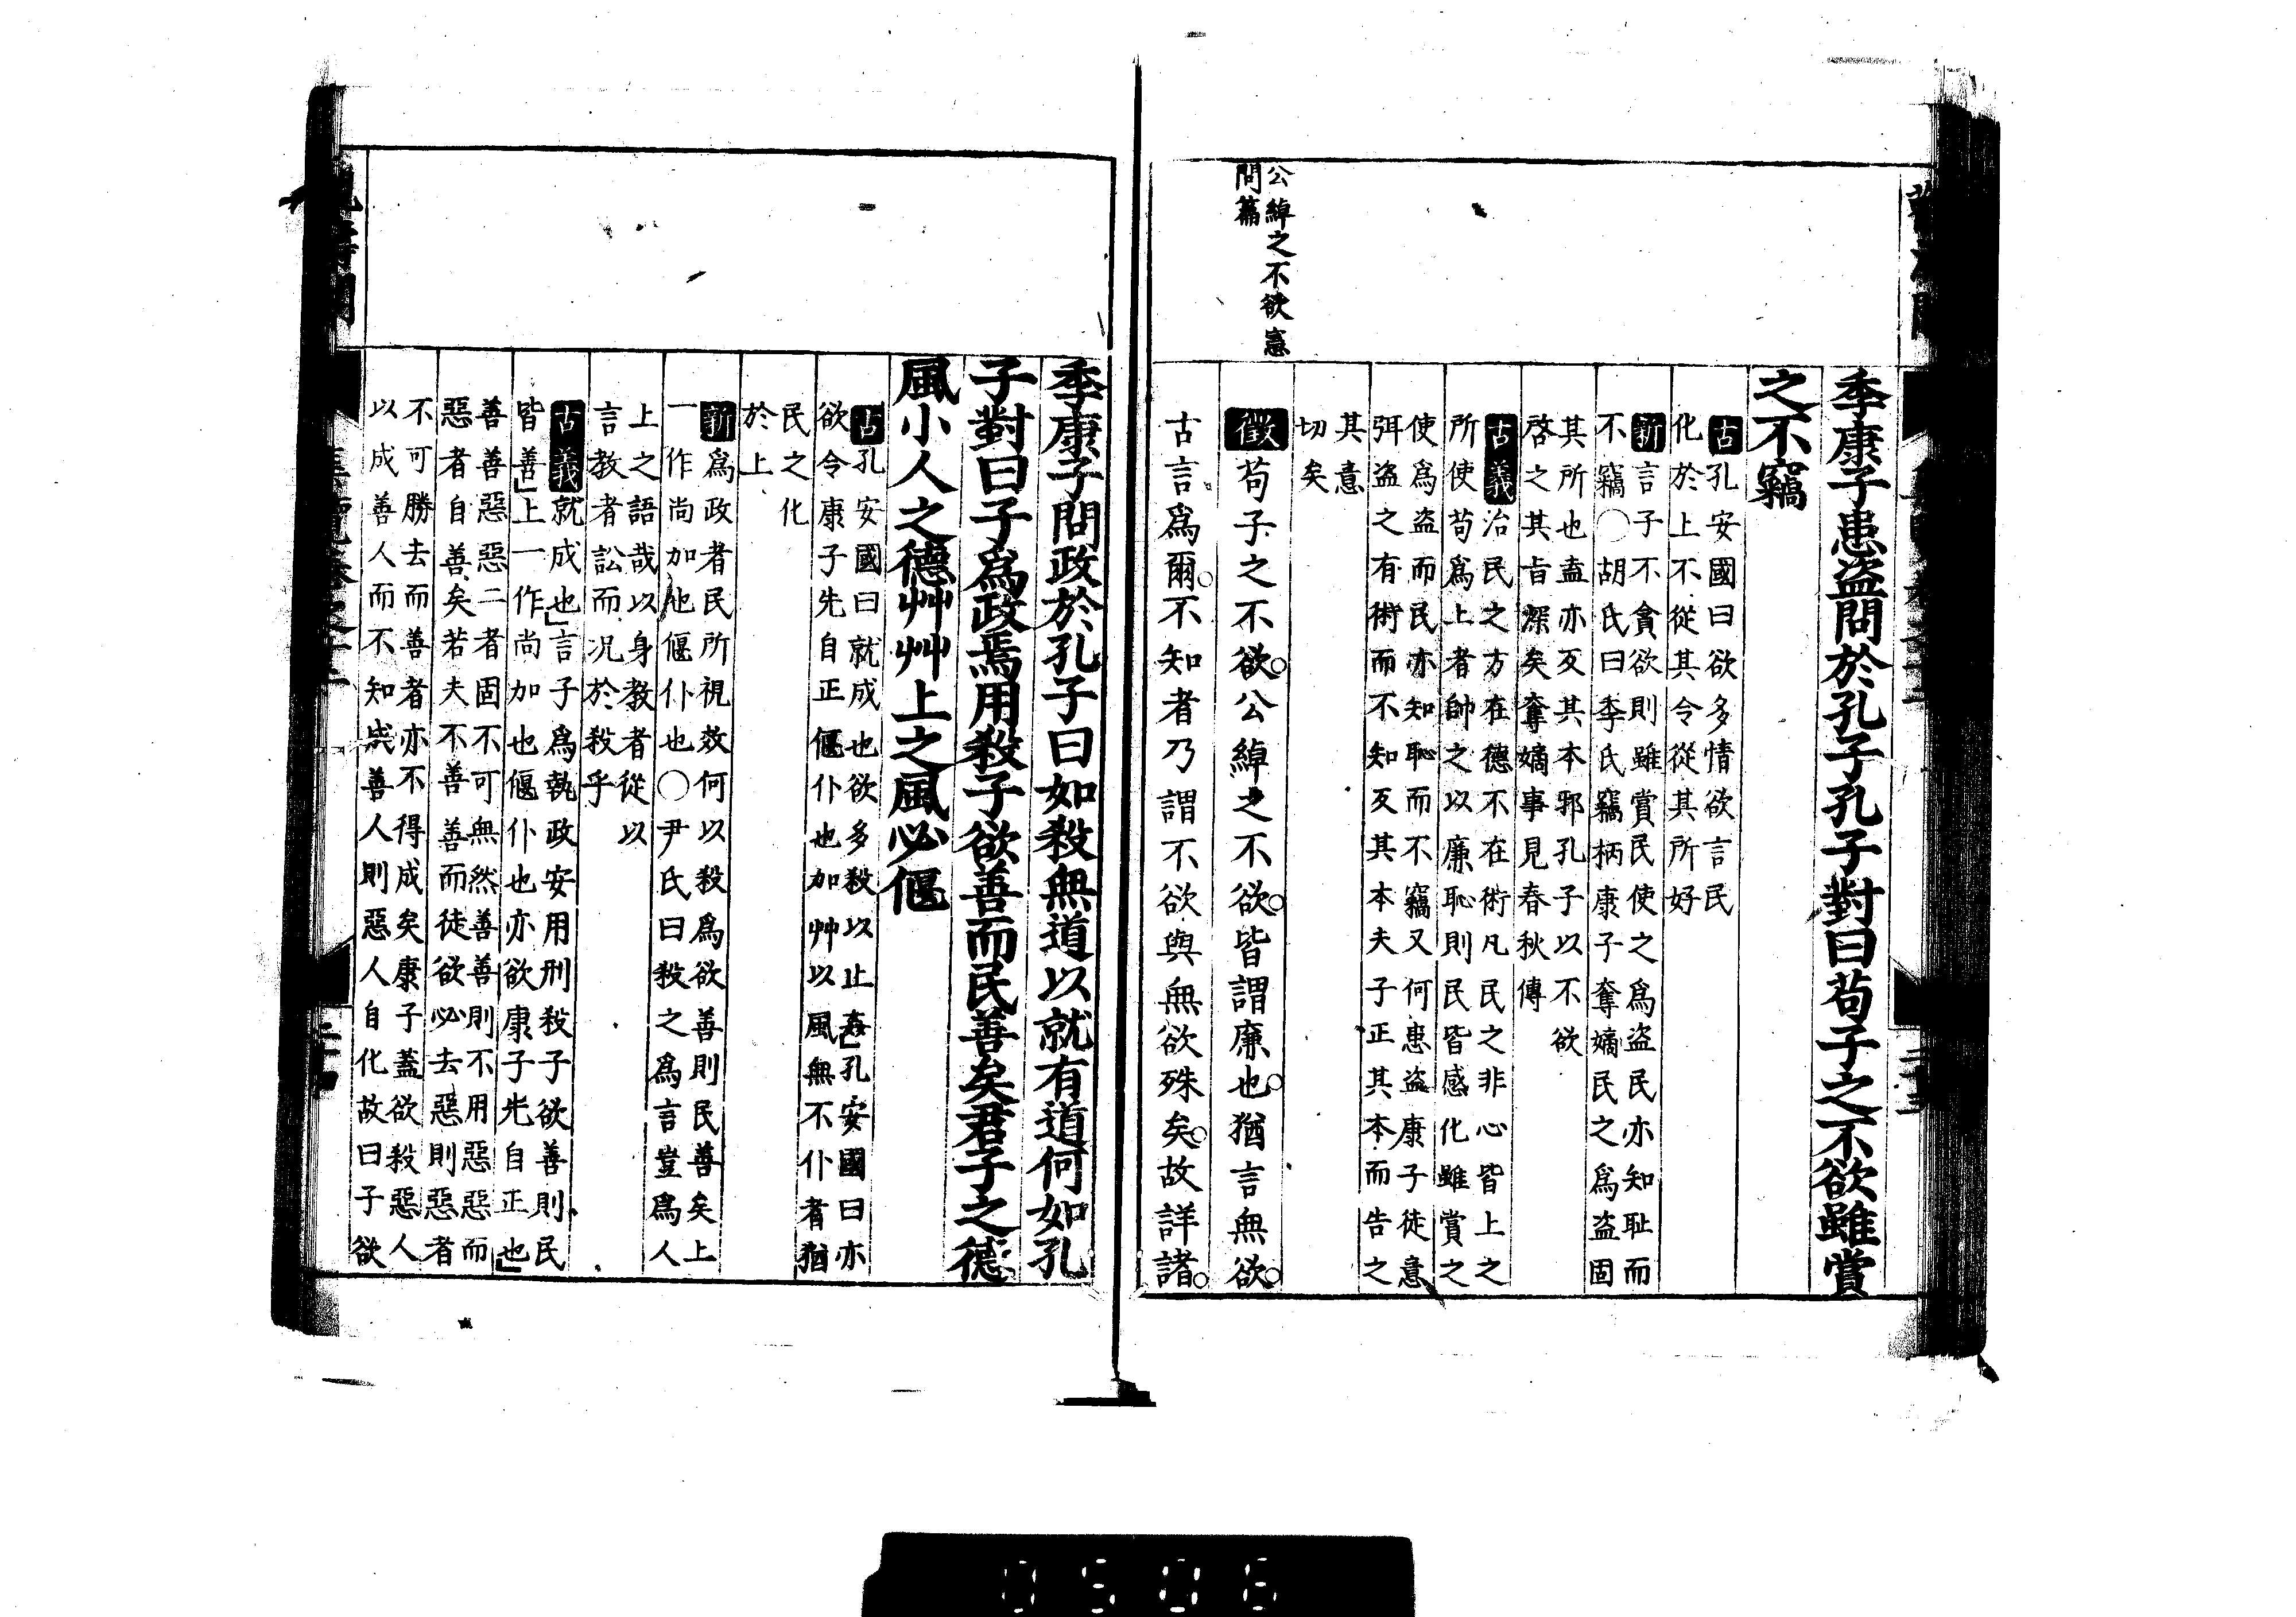 公綽之不欲憲
問篇
季康子患盜問於孔子孔子對曰苟子之不欲雖賞
之不竊
古孔安國曰欲多情欲言民
化於上不從其令從其所好
新言子不貪欲則雖賞民使之爲盜民亦知耻而
不竊○胡氏曰季氏竊柄康子奪嫡民之爲盜固
其所也盍亦反其本邪孔子以不欲
啓之其旨深矣奪嫡事見春秋傳
古義治民之方在德不在術凡民之非心皆上之
所使苟爲上者帥之以廉恥則民皆感化雖賞之
使爲盜而民亦知恥而不竊又何患盜康子徒意
弭盜之有術而不知反其本夫子正其本而告之
其意
切矣
徵苟子之不欲公綽之不欲皆謂廉也猶言無欲
古言爲爾不知者乃謂不欲與無欲殊矣故詳諸
季康子問政於孔子曰如殺無道以就有道何如孔
子對曰子爲政焉用殺子欲善而民善矣君子之德
風小人之德艸艸上之風必偃
古孔安國曰就成也欲多殺以止姦孔安國曰亦
欲令康子先自正偃仆也加艸以風無不仆者猶
民之化
於上
新爲政者民所視效何以殺爲欲善則民善矣上
一作尚加也偃仆也○尹氏曰殺之爲言豈爲人
上之語哉以身教者從以
言教者訟而况於殺乎
古義就成也言子爲執政安用刑殺子欲善則民
皆善上一作尚加也偃仆也亦欲康子先自正也
善善惡惡二者固不可無然善善則不用惡惡而
惡者自善矣若夫不善善而徒欲必去惡則惡者
不可勝去而善者亦不得成矣康子蓋欲殺惡人
以成善人而不知成善人則惡人自化故曰子欲
0506